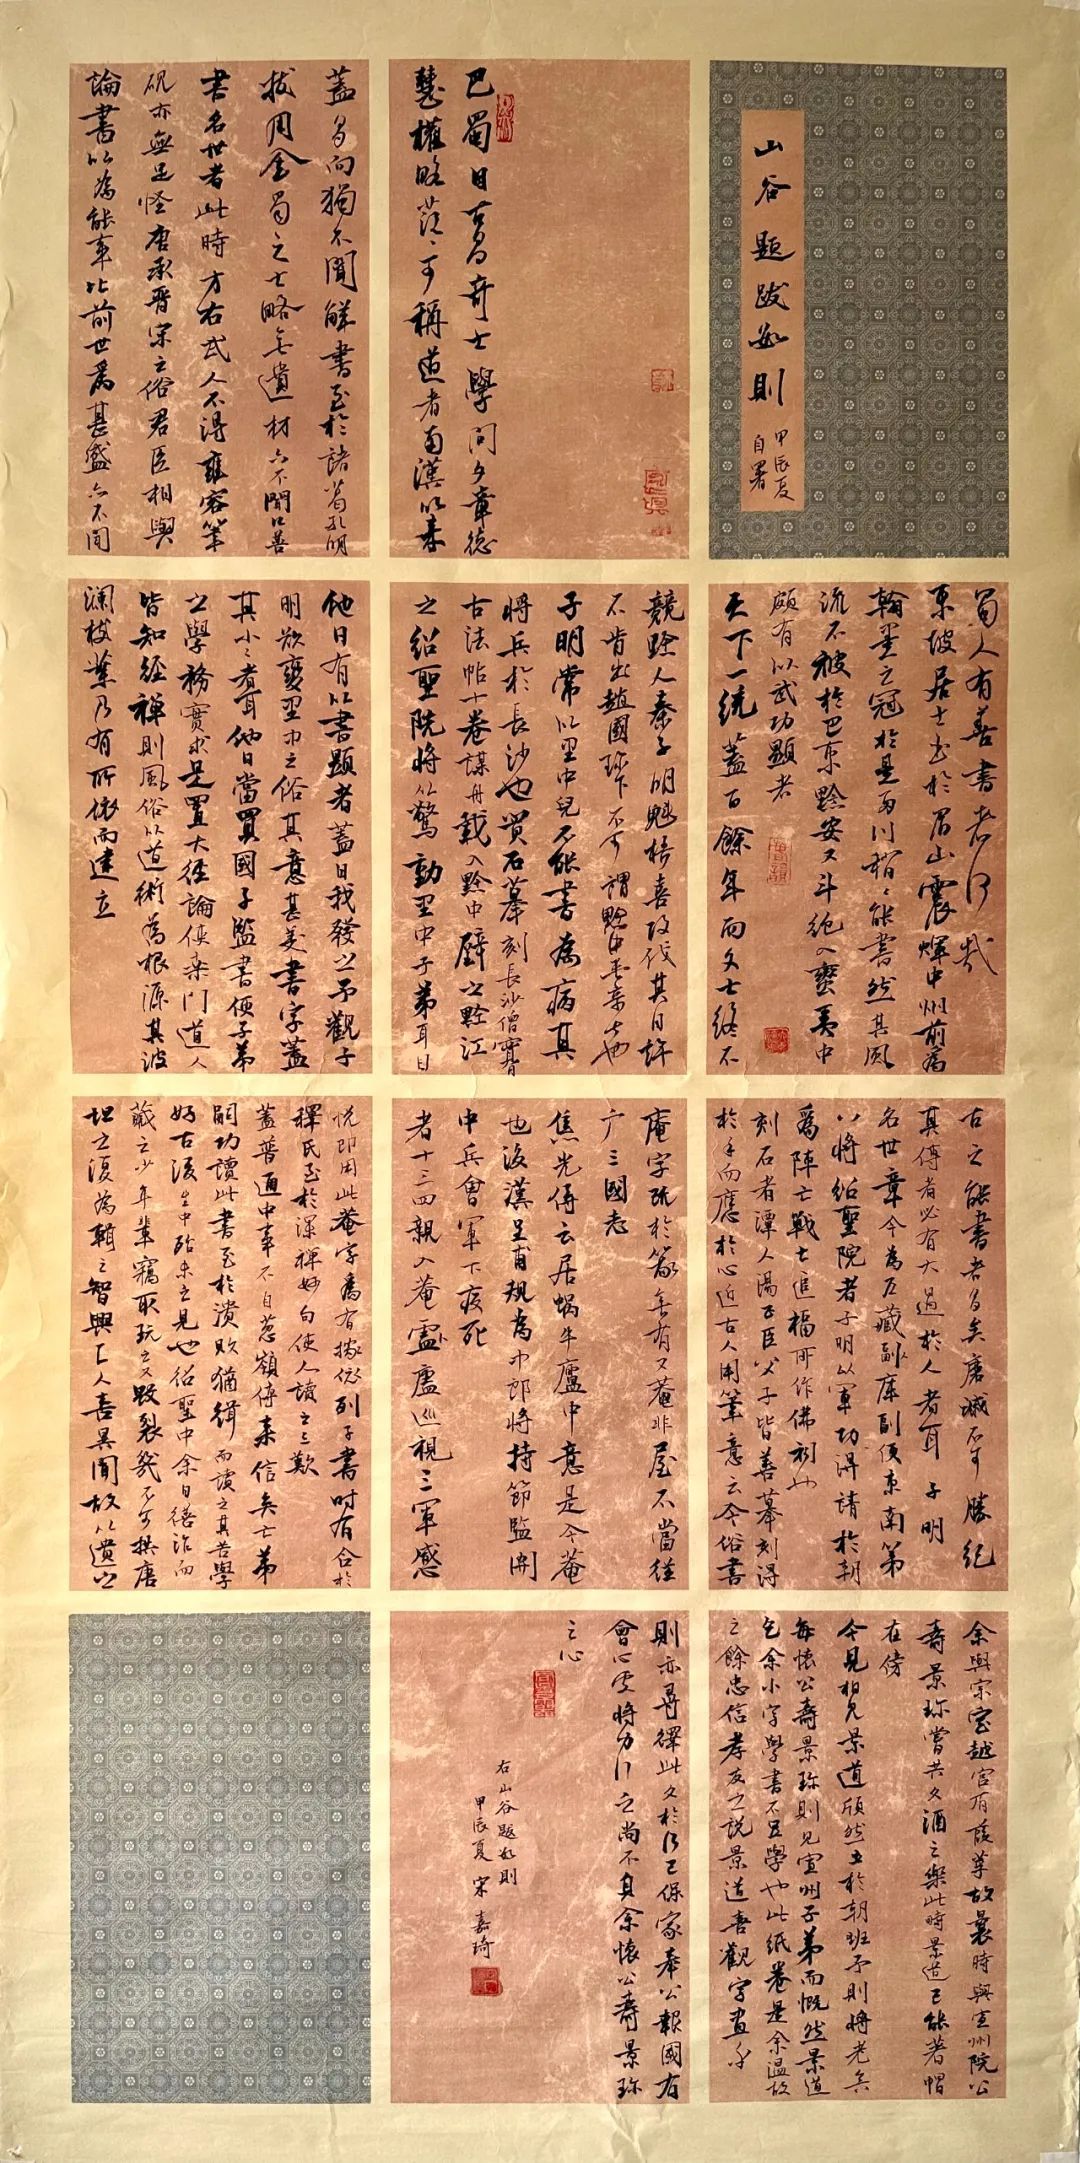 山谷題跋數則
甲辰夏
自署
巴蜀自古多奇士學問文章德
慧權略落落可稱道者兩漢以來
蓋多而獨不聞解書至於諸葛孔明
拔用全蜀之士略無遺材亦不聞以善
書名世者此時方右武人不得雍容筆
硯亦無足怪唐承晉宋之俗君臣相與
論書以為能事比前世為甚盛亦不聞
蜀人有善書者何哉
東坡居士出於眉山震輝中州蔚為
翰墨之冠於是兩川稍稍能書然其風
流不被於巴東黔安又斗絕入蠻夷中
頗有以武功顯者
天下一統蓋百餘年而文士終不
競黔人秦子明魁梧喜攻伐其自許
不肯出趙國珍下不可謂黔中無奇士也
子明常以里中兒不能書為病其
將兵於長沙也買石摹刻長沙僧寶月
古法帖十卷謀舟載入黔中壁之黔江
之紹聖院將以驚動里中子弟耳目
他日有以書顯者蓋自我發之予觀子
明欲變里中之俗其意甚美書字蓋
其小小者耳他日當買國子監書使子弟
之學務實求是置大經論使桑門道人
皆知經禪則風俗以道術為根源其波
瀾枝葉乃有所依而建立
古之能書者多矣磨滅不可勝紀
其傳者必有大過於人者耳 子明
名世章今為左藏副庫副使東南第
以將紹聖院者子明以軍功得請於朝
為陣亡戰士追福所作佛祠也
刻石者潭人湯正臣父子皆善摹刻得
於手而應於心近古人用筆意云今俗書
庵字既於篆無有又菴非屋不當從
广三國志
焦光傳云居蝸牛廬中意是今菴
也後漢皇甫規為中郎將持節監關
中兵會軍下疫死
者十三四親入菴廬巡視三軍感
悅即用此菴字為有據依列子書時有合於
釋氏至於深禪妙句使人讀之三歎
蓋普通中事不自蔥嶺傳來信矣亡弟
嗣功讀此書至於潰敗猶緝而讀之其苦學
好古後生中殆未之見也紹聖中余自繕治而
藏之少年輩竊取玩之又毀裂幾不可挾唐
坦之復為輯之智興上人喜異聞故以遺之
余與宗室越宮有葭莩故曩時與宣州院公
壽景珍嘗共文酒之樂此時景道已能著帽
在傍
今見相見景道頎然立於朝班予則將老矣
每懷公壽景珍則見宣州子弟而慨然景道
乞余小字學書不足學也此紙卷是余溫故
之餘忠信孝友之說景道喜觀字畫乎
則亦尋繹此文於行己保家奉公報國有
會心處將力行之尚不負余懷公壽景珍
之心
右山谷題數則
甲辰夏 宋嘉琦